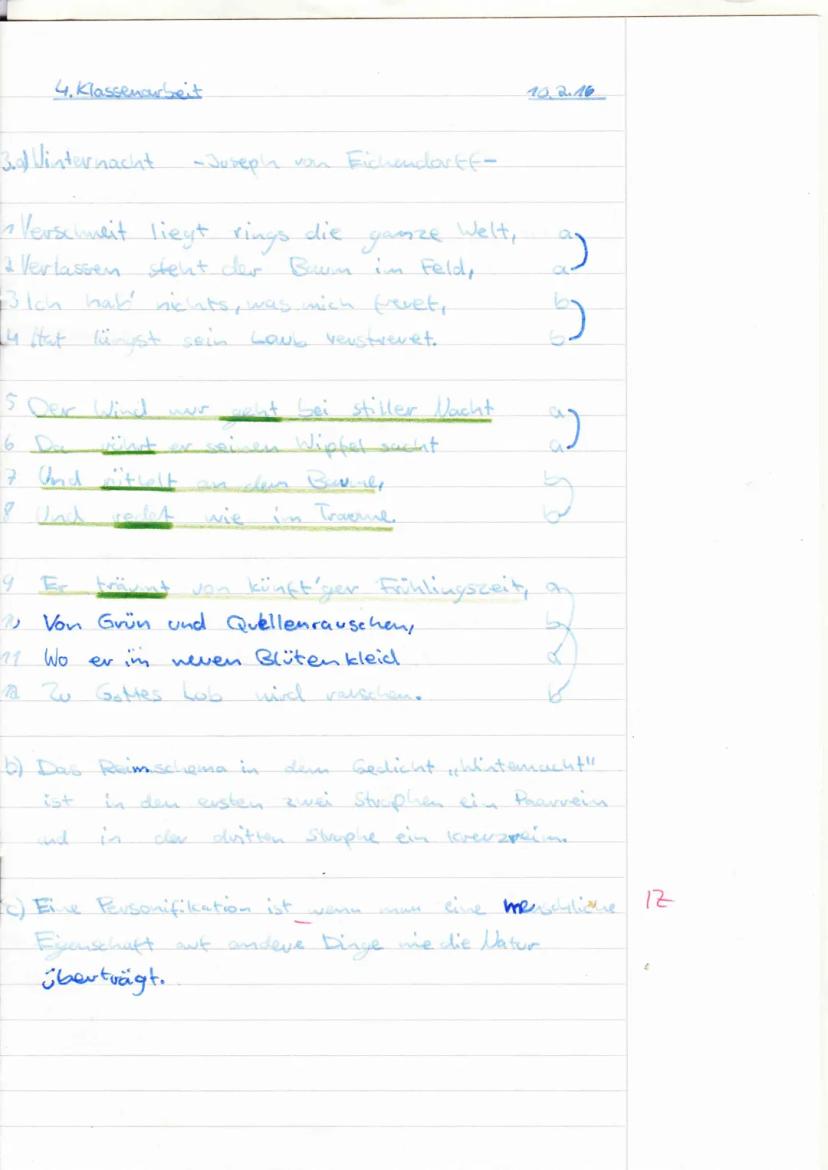 4. Klassenarbeit 10.2.16
3.a) Winternacht -Joseph von Eichendorff-
1 Verschneit liegt rings die ganze Welt, a
2 Verlassen steht der Baum im Feld, a
3 Ich hab' nichts, was mich freuet, b
4 Hat längst sein Laub verstreuet. b
5 Der Wind nur geht bei stiller Nacht a
6 Da rührt er seinen Wipfel sacht a
7 Und rüttelt an dem Baume, b
8 Und redet wie im Traume. b
9 Er träumt von künft'ger Frühlingszeit, a
10 Von Grün und Quellenrauschen, b
11 Wo er im neuen Blütenkleid a
12 Zu Gottes Lob wird rauschen. b
b) Das Reimschema in dem Gedicht „Winternacht"
ist in den ersten zwei Strophen ein Paarreim
und in der dritten Strophe ein Kreuzreim.
c) Eine Personifikation ist wenn man eine menschliche IZ
Eigenschaft auf andere Dinge wie die Natur
überträgt.